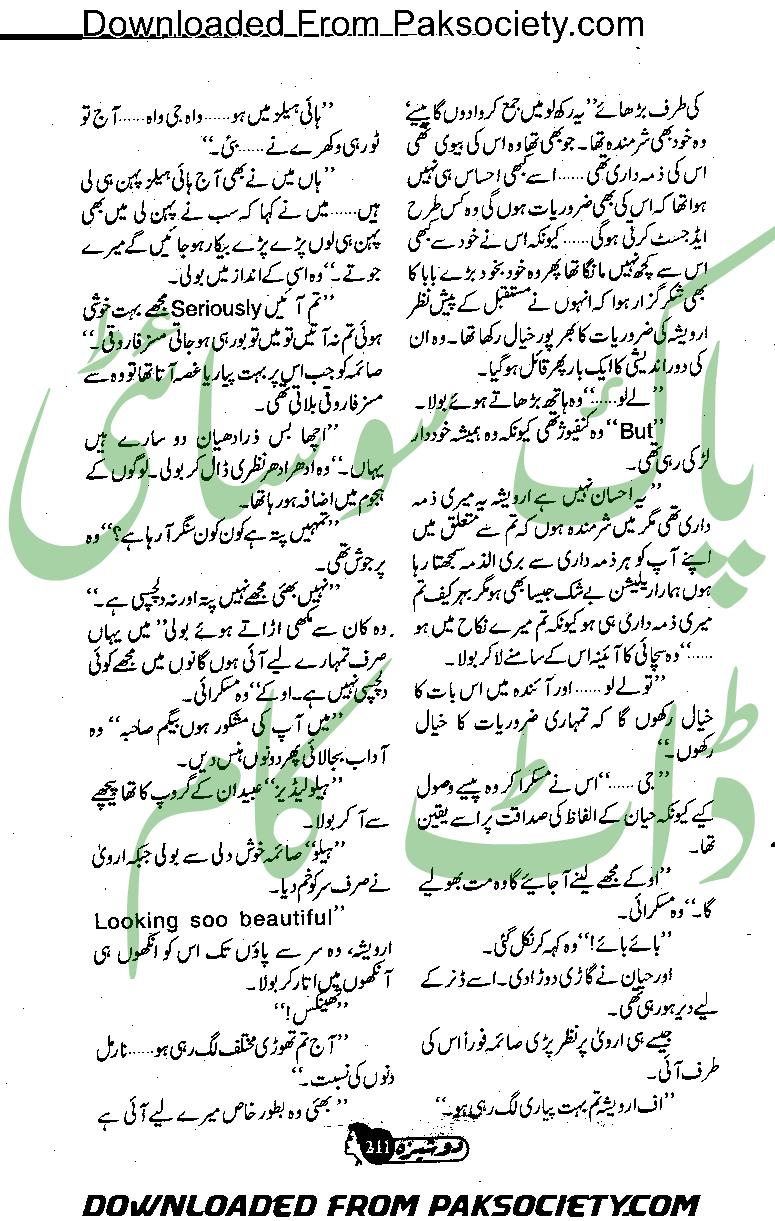 Downloaded From Paksociety.com
کی طرف بڑھائے ”یہ رکھ لو میں جمع کروا دوں گا پیسے‘
وہ خود بھی شرمندہ تھا۔ جو بھی تھا وہ اس کی بیوی تھی
اس کی ذمہ داری تھی...... اسے کبھی احساس ہی نہیں
ہوا تھا کہ اس کی بھی ضروریات ہوں گی وہ کس طرح
ایڈجسٹ کرتی ہوگی...... کیونکہ اس نے خود سے کبھی
اس سے کچھ نہیں مانگا تھا پھر وہ خود بخود بڑے بابا کا
بھی شکر گزار ہوا کہ انہوں نے مستقبل کے پیش نظر
ارویشہ کی ضروریات کا بھرپور خیال رکھا تھا۔ وہ ان
کی دور اندیشی کا ایک بار پھر قائل ہوگیا۔
”لے لو......“ وہ ہاتھ بڑھاتے ہوئے بولا۔
”But“ وہ کنفیوژ تھی کیونکہ وہ ہمیشہ خوددار
لڑکی رہی تھی۔
”یہ احسان نہیں ہے ارویشہ یہ میری ذمہ
داری تھی مگر میں شرمندہ ہوں کہ تم سے متعلق میں
اپنے آپ کو ہر ذمہ داری سے بری الذمہ سمجھتا رہا
ہوں ہمارا ریلیشن بے شک جیسا بھی ہو مگر بہر کیف تم
میری ذمہ داری ہی ہو کیونکہ تم میرے نکاح میں ہو
......“ وہ سچائی کا آئینہ اس کے سامنے لا کر بولا۔
”تو لے لو...... اور آئندہ میں اس بات کا
خیال رکھوں گا کہ تمہاری ضروریات کا خیال
رکھوں۔“
”جی......“ اس نے مسکرا کر وہ پیسے وصول
کیے کیونکہ حیان کے الفاظ کی صداقت پر اسے یقین
تھا۔
”اوکے مجھے لینے آ جائیے گا وہ مت بھولیے
گا۔“ وہ مسکرائی۔
”بائے بائے!“ وہ کہہ کر نکل گئی۔
اور حیان نے گاڑی دوڑا دی۔ اسے ڈنر کے
لیے دیر ہو رہی تھی۔
جیسے ہی ارویٰ پر نظر پڑی صائمہ فوراً اس کی
طرف آئی۔
”اف ارویشہ تم بہت پیاری لگ رہی ہو۔“
”ہائی ہیلز میں ہو...... واہ جی واہ...... آج تو
ٹور ہی وکھرے نے...... بئی۔“
”ہاں میں نے بھی آج ہائی ہیلز پہن ہی لی
ہیں...... میں نے کہا کہ سب نے پہن لی میں بھی
پہن ہی لوں پڑے پڑے بیکار ہو جائیں گے میرے
جوتے۔“ وہ اسی کے انداز میں بولی۔
”تم آئیں Seriously مجھے بہت خوشی
ہوئی تم نہ آتیں تو میں تو بور ہی ہو جاتی مسز فاروقی۔“
صائمہ کو جب اس پر بہت پیار یا غصہ آتا تھا تو وہ سے
مسز فاروقی بلاتی تھی۔
”اچھا بس ذرا دھیان دو سارے ہیں
یہاں۔“ وہ ادھر ادھر نظری ڈال کر بولی۔ لوگوں کے
ہجوم میں اضافہ ہو رہا تھا۔
”تمہیں پتہ ہے کون کون سنگر آ رہا ہے؟“ وہ
پر جوش تھی۔
”نہیں بھئی مجھے نہیں پتہ اور نہ دلچسپی ہے۔“
وہ کان سے مکھی اڑاتے ہوئے بولی ”میں یہاں
صرف تمہارے لیے آئی ہوں گانوں میں مجھے کوئی
دلچسپی نہیں ہے۔ اوکے“ وہ مسکرائی۔
”میں آپ کی مشکور ہوں بیگم صاحبہ“ وہ
آداب بجا لائی پھر دونوں ہنس دیں۔
”ہیلو لیڈیز“ عبید ان کے گروپ کا تھا پیچھے
سے آ کر بولا۔
”ہیلو“ صائمہ خوش دلی سے بولی جبکہ ارویٰ
نے صرف سر کو خم دیا۔
”Looking soo beautiful
ارویشہ، وہ سر سے پاؤں تک اس کو آنکھوں ہی
آنکھوں میں اتار کر بولا۔
”تھینکس!“
”آج تم تھوڑی مختلف لگ رہی ہو...... نارمل
دنوں کی نسبت۔“
”بھئی وہ بطور خاص میرے لیے آئی ہے
پاک سوسائٹی
ڈاٹ کام
دوشیزہ 211
DOWNLOADED FROM PAKSOCIETY.COM